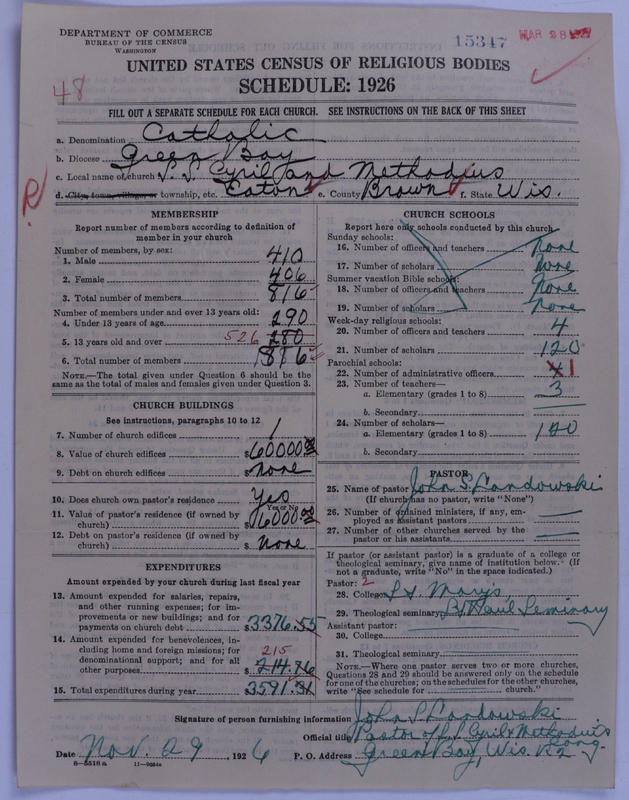 DEPARTMENT OF COMMERCE
BUREAU OF THE CENSUS
WASHINGTON
15347
MAR 28 1927
UNITED STATES CENSUS OF RELIGIOUS BODIES
SCHEDULE: 1926
48
FILL OUT A SEPARATE SCHEDULE FOR EACH CHURCH. SEE INSTRUCTIONS ON THE BACK OF THIS SHEET
a. Denomination Catholic
b. Diocese Green Bay
c. Local name of church S.S. Cyril and Methodius
R
d. City, town, village, or township, etc. Eaton e. County Brown f. State Wis.
MEMBERSHIP
Report number of members according to definition of
member in your church
Number of members, by sex:
1. Male 410
2. Female 406
3. Total number of members 816
Number of members under and over 13 years old:
4. Under 13 years of age 290
5. 13 years old and over 526 280
6. Total number of members 816
NOTE.—The total given under Question 6 should be the
same as the total of males and females given under Question 3.
CHURCH BUILDINGS
See instructions, paragraphs 10 to 12
7. Number of church edifices 1
8. Value of church edifices $60000.00
9. Debt on church edifices $None
10. Does church own pastor's residence Yes
Yes or No
11. Value of pastor's residence (if owned by
church) $6000.00
12. Debt on pastor's residence (if owned by
church) $None
EXPENDITURES
Amount expended by your church during last fiscal year
13. Amount expended for salaries, repairs,
and other running expenses; for im-
provements or new buildings; and for
payments on church debt $3376.55
14. Amount expended for benevolences, in-
cluding home and foreign missions; for
denominational support; and for all
other purposes 215 $214.76
15. Total expenditures during year $3591.31
CHURCH SCHOOLS
Report here only schools conducted by this church
Sunday schools:
16. Number of officers and teachers None
17. Number of scholars None
Summer vacation Bible schools:
18. Number of officers and teachers None
19. Number of scholars None
Week-day religious schools:
20. Number of officers and teachers 4
21. Number of scholars 120
Parochial schools:
22. Number of administrative officers 1
23. Number of teachers—
a. Elementary (grades 1 to 8) 3
b. Secondary
24. Number of scholars—
a. Elementary (grades 1 to 8) 120
b. Secondary
PASTOR
25. Name of pastor John S. Landowski
(If church has no pastor, write "None")
26. Number of ordained ministers, if any, em-
ployed as assistant pastors
27. Number of other churches served by the
pastor or his assistants
If pastor (or assistant pastor) is a graduate of a college or
theological seminary, give name of institution below. (If
not a graduate, write "No" in the space indicated.)
Pastor: 2
28. College St. Mary's
29. Theological seminary St Paul Seminary
Assistant pastor:
30. College
31. Theological seminary
NOTE.—Where one pastor serves two or more churches,
Questions 28 and 29 should be answered only on the schedule
for one of the churches; on the schedules for the other churches,
write "See schedule for church."
Signature of person furnishing information John S Landowski
Official title Pastor of S.S. Cyril & Methodius Cong.
Date Nov. 29, 1926 P. O. Address Green Bay, Wis. R2
8—5518a 11—9034a